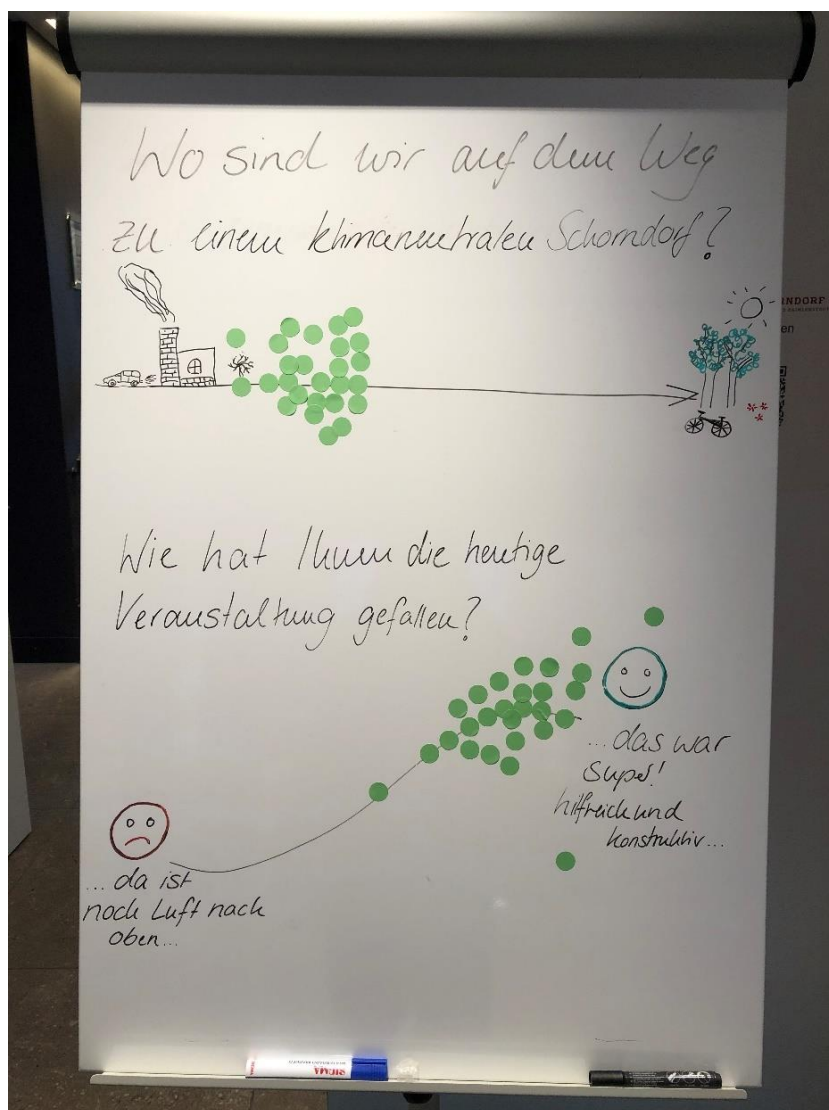 Wo sind wir auf dem Weg
zu einem klimaneutralen Schorndorf?
NDORF
en
Wie hat Ihnen die heutige
Veranstaltung gefallen?
...das war
super!
hilfreich und
konstruktiv...
...da ist
noch Luft nach
oben...
SIGMA